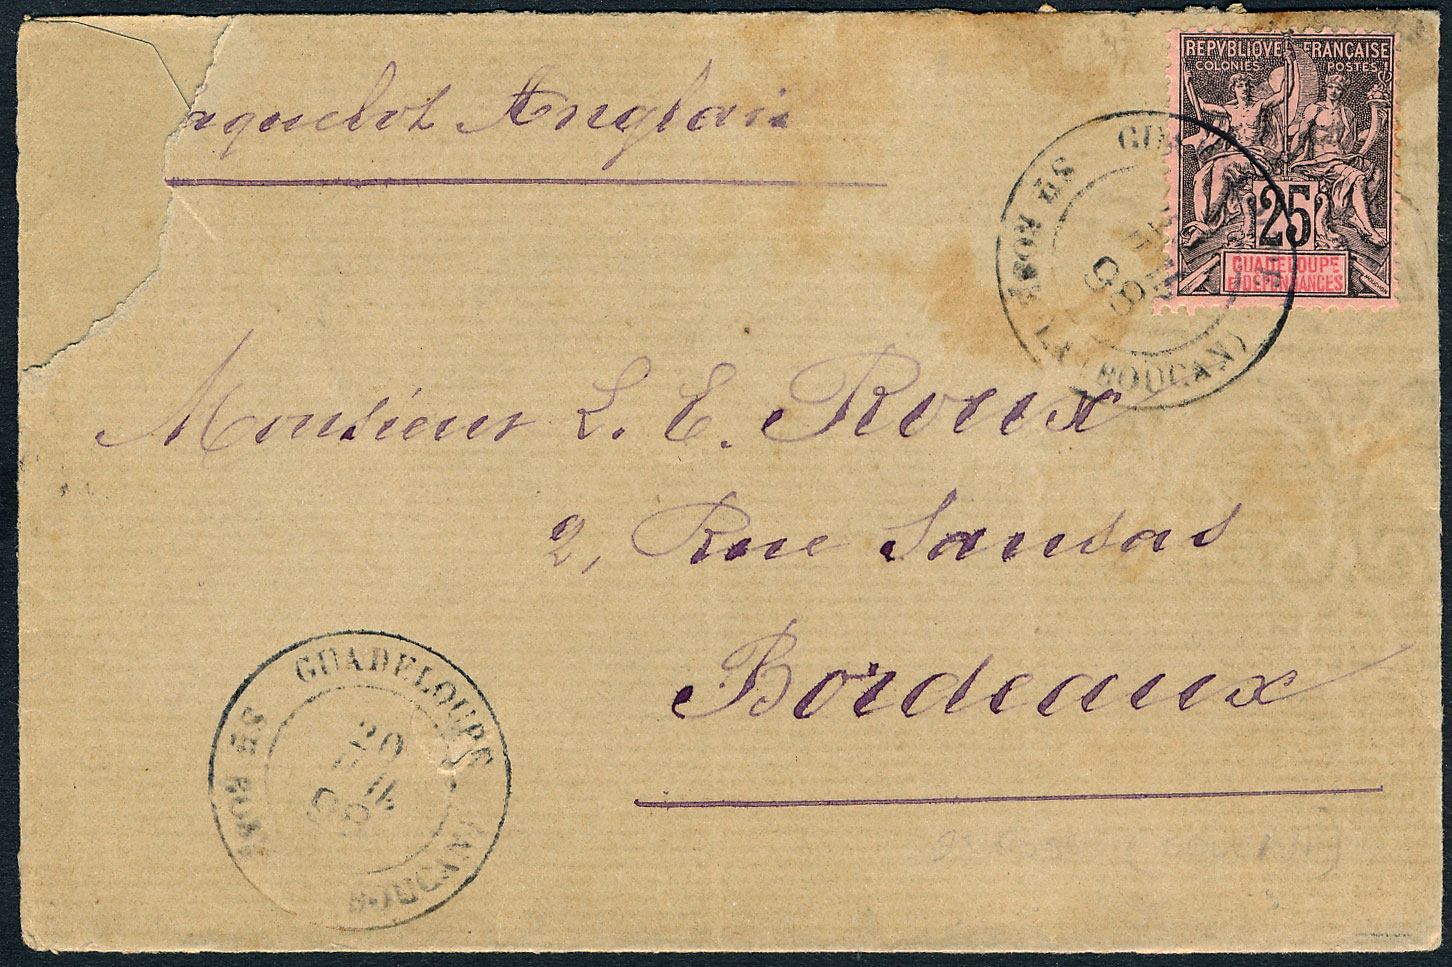 aquebot Anglais
REPVBLIQVE FRANÇAISE
COLONIES POSTES
25
GUADELOUPE
ET DÉPENDANCES
MOUCHON
STE ROSE
98
(BOUCAN)
Monsieur L. E. Roux
2, Rue Sansas
Bordeaux
GUADELOUPE
STE ROSE
20
JUIL
98
(BOUCAN)